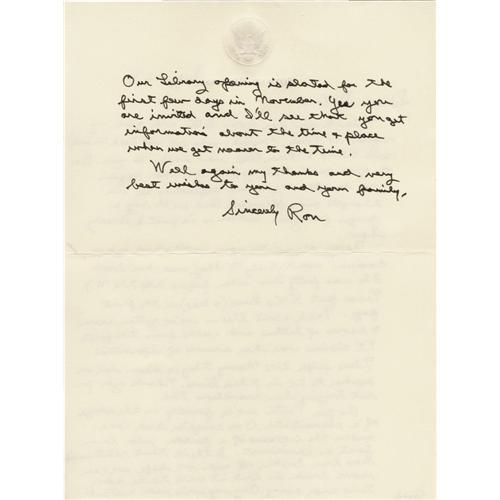 Our Library opening is slated for the
first few days in November. Yes you
are invited and I'll see that you get
information about the time & place
when we get nearer to the time.
Well again my thanks and very
best wishes to you and your family.
Sincerely Ron